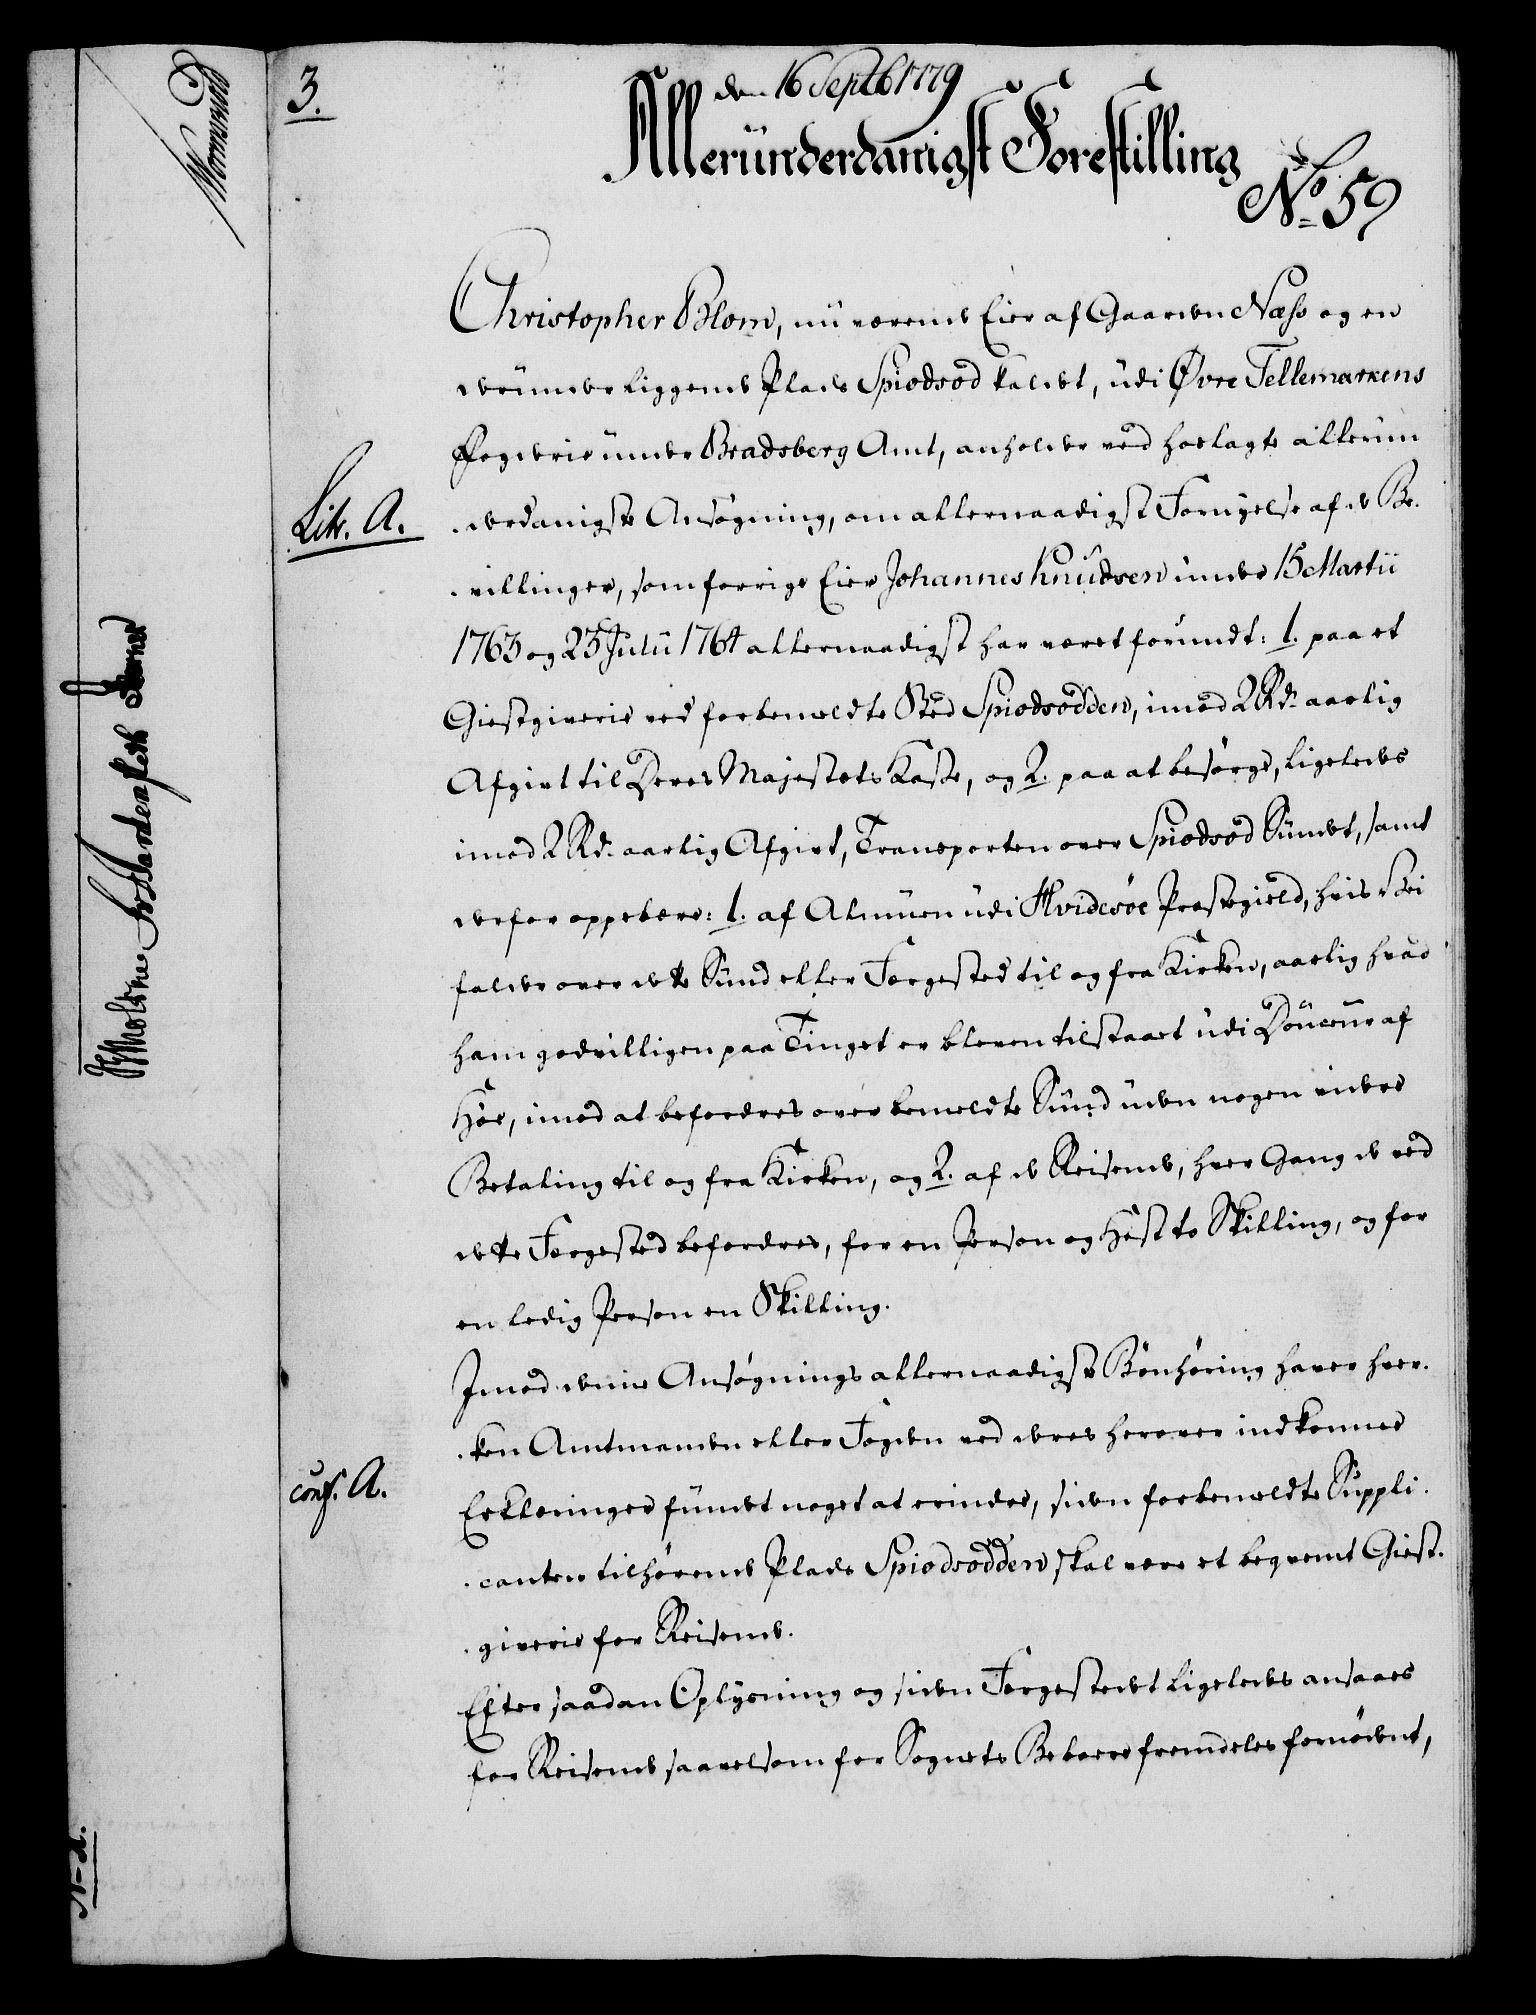 3.
den 16 Septb 1779
Alleründerdanigst Forestilling
No. 59
Christopher Blom, nü værende Eier af Gaarden Næss og en
deründer liggende Plads Spiodsod kaldet, üdi Øvre Tellemarkens
Fogderie ünder Bradsberg Amt, anholder ved hoslagte allerün-
Litr. A.
-derdanigste Ansøgning, om allernaadigst Fornyelse af de Be-
-villinger, som forrige Eier Johannes Knüdsen ünder 15 Martii
1763 og 23 Julii 1764 allernaadigst har været forundt: 1. paa et
Giestgiverie ved forbemeldte Sted Spiodsodden, imod 2 Rd. aarlig
Afgivt til Deres Majestæts Kasse, og 2. paa at besørge, ligeledes
imod 2 Rd. aarlig Afgivt, Transporten over Spiodsod Sündet, samt
derfor oppebære: 1. af Almüen üdi Hvidesøe Præstegield, hvis Vei
falder over dette Sünd eller Færgested til og fra Kirken, aarlig hvad
ham godvilligen paa Tinget er bleven tilstaaet üdi Doüceür af
Høe, imod at befordres over bemeldte Sünd üden nogen videre
Betaling til og fra Kirken, og 2. af de Reisende, hver Gang de ved
dette Færgested befordres, for en Person og Hest to Skilling, og for
en ledig Person en Skilling.
Imod denne Ansøgnings allernaadigste Bønhøring haver hver-
-ken Amtmanden eller Fogden ved deres herover indkomne
conf. A.
Erklæringer fündet noget at erindre, siden forbemeldte Süppli-
-canten tilhørende Plads Spiodsodden skal være et beqvemt Giest-
-giverie for Reisende.
Efter saadan Oplysning og siden Færgestedet ligeledes ansaaes
for Reisende saavelsom for Sognets Beboere fremdeles fornødent,